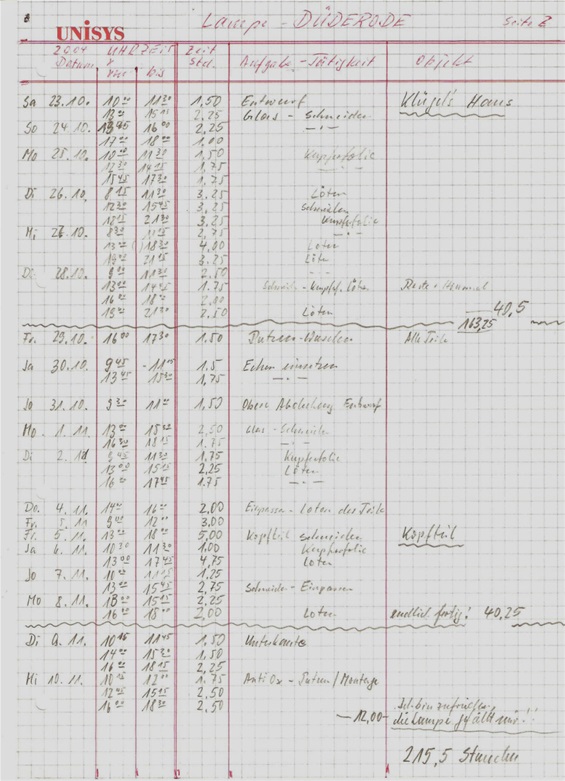 UNISYS Lampe - DÜDERODE Seite 8
2004 UHRZEIT Zeit
Datum von bis Std. Aufgabe - Tätigkeit Objekt
Sa 23.10. 10 00 11 30 1,50 Entwurf Klügel's Haus
2,25 Glas - Schneiden
So 24.10. 13 45 16 00 2,25 -"-
17 00 18 00 1,00
Mo 25.10. 10 00 11 30 1,50 Kupferfolie
1,75
15 45 17 30 1,75
Di 26.10. 8 15 11 30 3,25 Löten
12 30 15 45 3,25 Schneiden
3,25 Kupferfolie
Mi 27.10. 8 30 2,75 -"-
4,00 Löten
3,25 Löten
28.10. 9 00 11 30 2,50
13 00 14 45 1,75 Schneid - Kupf. Löten
16 00 18 00 2,00
2,50 Löten 40,5
163,25
Fr. 29.10. 16 00 17 30 1,50 Putzen - Alle Teile
Sa 30.10. 9 45 - 11 15 1,5 Ecken einsetzen
13 45 15 30 1,75 -"-
31.10. 9 30 11 00 1,50 Obere Entwurf
Mo. 1.11. 13 00 15 30 2,50 Glas - Schneiden
1,75 -"-
Di 2.11 9 45 11 30 1,75 Kupferfolie
13 00 15 15 2,25 Löten
16 00 17 45 1,75 -"-
Do. 4.11. 14 00 16 00 2,00 Einpassen - Löten der Teile
Fr. 5.11 9 00 12 00 3,00
Fr. 5.11. 13 00 18 00 5,00 Kopfteil Schneiden Kopfteil
Sa 6.11. 10 30 11 30 1,00 Kupferfolie
13 00 17 45 4,75 Löten
So 7.11. 10 00 11 15 1,25
13 00 15 45 2,75 Schneiden - Einpassen
Mo 8.11. 13 00 15 15 2,25
16 00 18 00 2,00 Löten endlich fertig! 40,25
Di 9.11. 10 15 11 45 1,50 Unterkante
14 00 15 30 1,50
16 00 18 15 2,25
Mi 10.11. 10 15 12 00 1,75 Anti Ox - Putzen/Montage
12 45 15 15 2,50
16 00 18 30 2,50 Ich bin zufrieden,
- 12,00 - die Lampe gefällt mir!!
215,5 Stunden